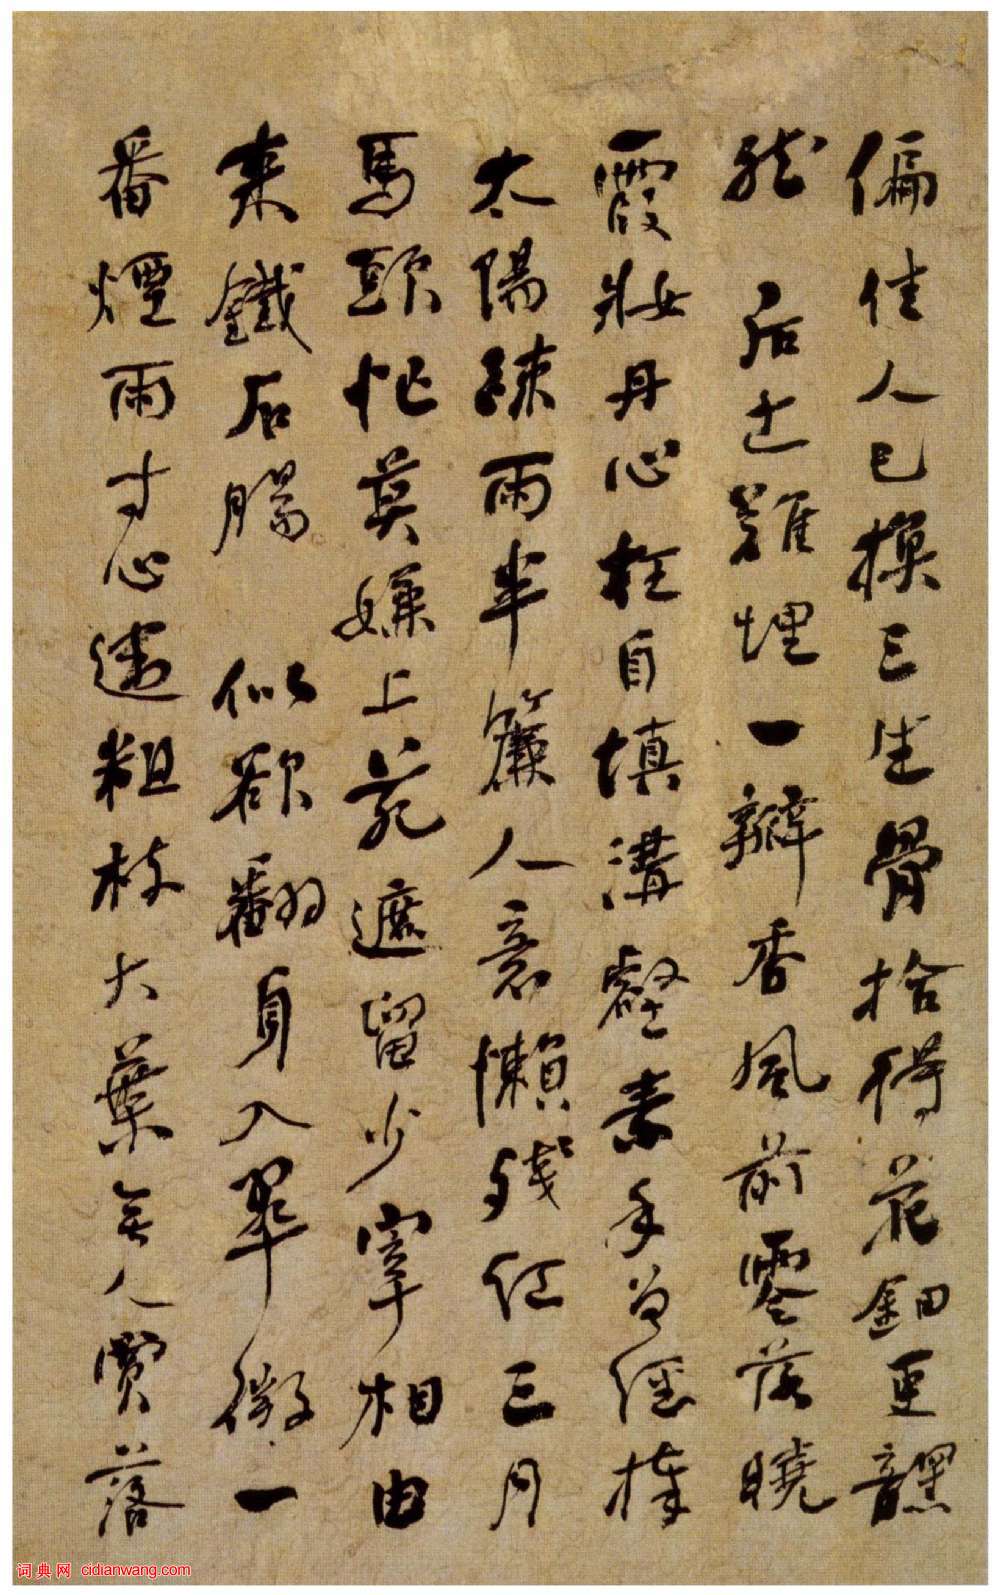 偏佳人已換三生骨拾得花鈿更黯
然 后土難埋一瓣香風前零落曉
霞妝丹心枉自填溝壑素手曾經捧
太陽疎雨半簾人意懶殘紅三月
馬頭忙莫嫌上苑遮留少宰相由
來鐵石腸 似欲翻身入翠微一
番煙雨寸心違粗枝大葉無人賞落
词典网 cidianwang.com